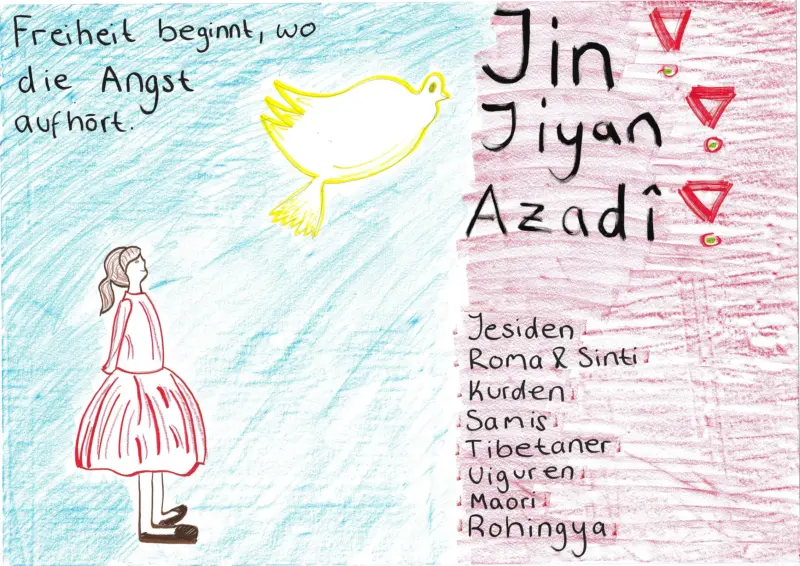 Freiheit beginnt, wo
die Angst
aufhört.
Jin!
Jiyan!
Azadî!
Jesiden
Roma & Sinti
Kurden
Samis
Tibetaner
Uiguren
Maori
Rohingya